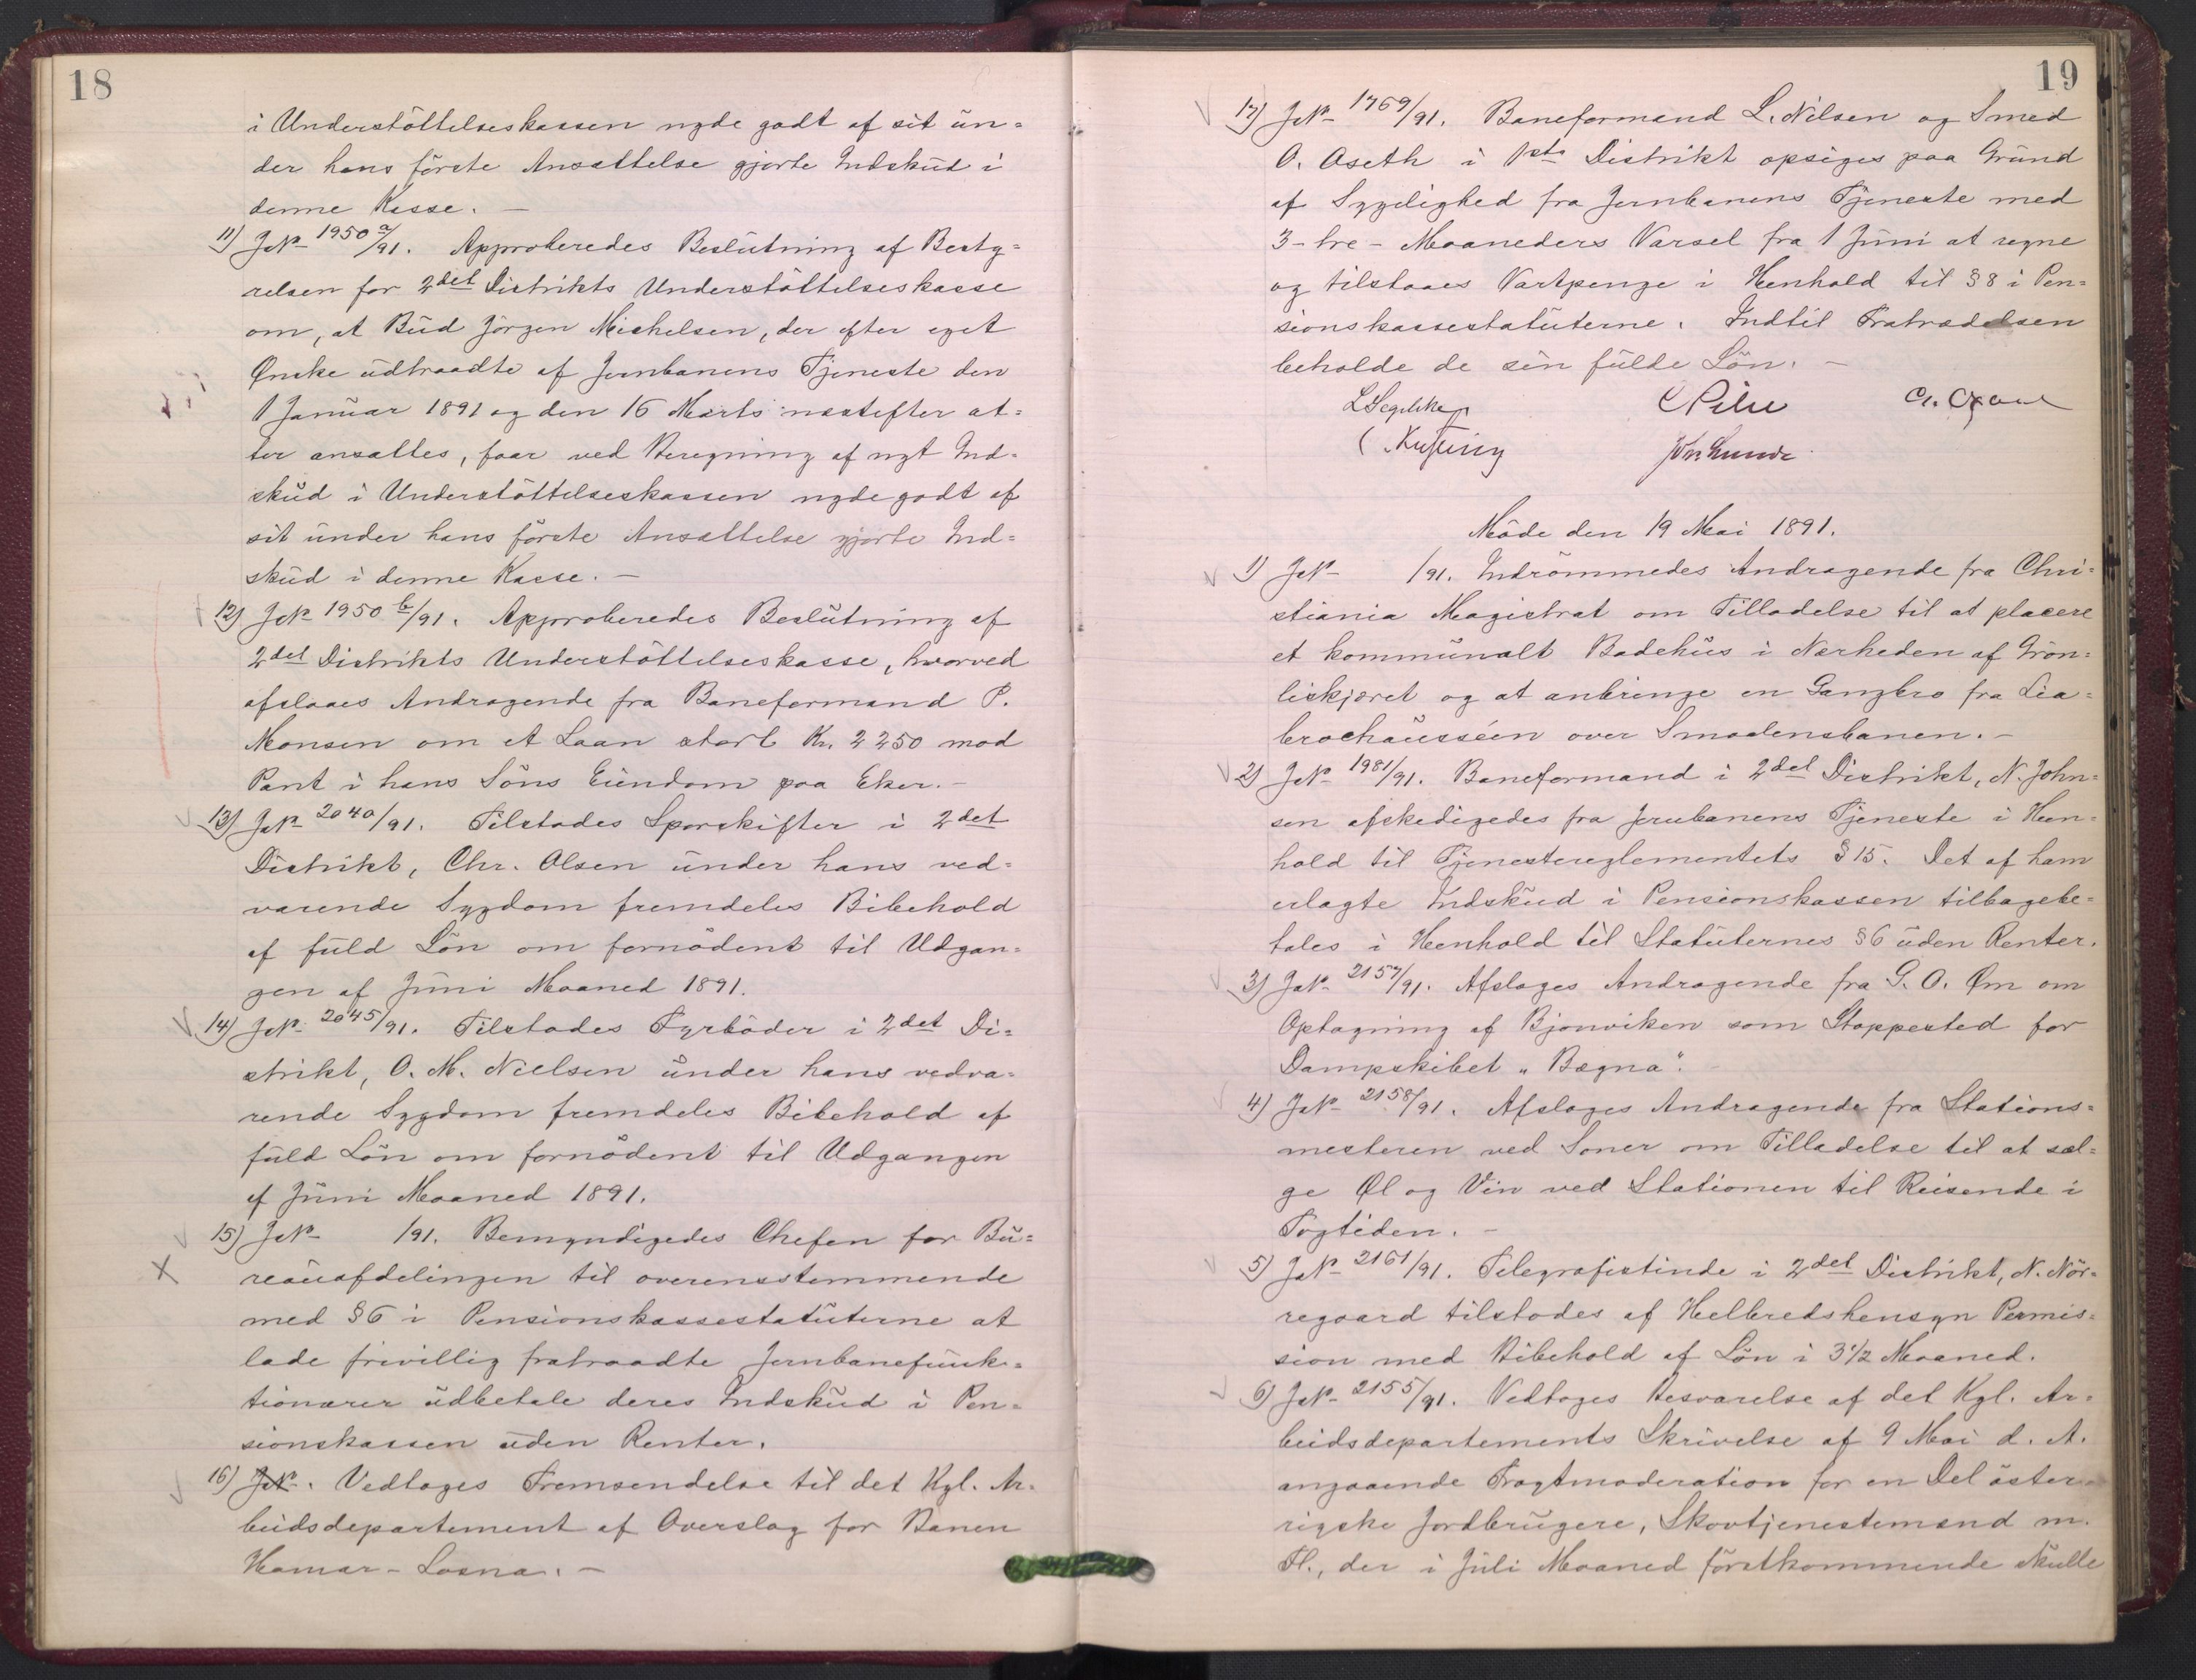 18
i Understöttelseskassen nyde godt af sit un=
der hans förste Ansættelse gjorte Indskud i
denne Kasse. —
11) JNo 1950 a/91. Approberedes Beslutning af Besty=
relsen for 2det Distrikts Understöttelseskasse
om, at Bud Jörgen Michelsen, der efter eget
Ønske udtraadte af Jernbanens Tjeneste den
1 Januar 1891 og den 16 Marts næstefter at=
ter ansattes, faar ved Beregning af nyt Ind=
skud i Understöttelseskassen nyde godt af
sit under hans förste Ansættelse gjorte Ind=
skud i denne Kasse. —
12) JNo 1950 b/91. Approberedes Beslutning af
2det Distrikts Understöttelseskasse, hvorved
afslaaes Andragende fra Baneformand P.
Monsen om et Laan stort Kr. 2250 mod
Pant i hans Söns Eiendom paa Eker. —
13) JNo 2040/91. Tilstodes Sporskifter i 2det
Distrikt, Chr. Olsen under hans ved=
varende Sygdom fremdeles Bibehold
af fuld Lön om fornödent til Udgan=
gen af Juni Maaned 1891.
14) JNo 2045/91. Tilstodes Fyrböder i 2det Di=
strikt, O. M. Nielsen under hans vedva=
rende Sygdom fremdeles Bibehold af
fuld Lön om fornödent til Udgangen
af Juni Maaned 1891.
15) JNo /91. Bemyndigedes Chefen for Bu=
reauafdelingen til overensstemmende
med § 6 i Pensionskassestatuterne at
lade frivillig fratraadte Jernbanefunk=
tionærer udbetale deres Indskud i Pen=
sionskassen uden Renter.
16) JNo. Vedtoges Fremsendelse til det Kgl. Ar=
beidsdepartement af Overslag for Banen
Hamar - Losna. —
19
17) JNo 1769/91. Baneformand L. Nilsen og Smed
O. Aseth i 1ste Distrikt opsiges paa Grund
af Sygelighed fra Jernbanens Tjeneste med
3 - tre - Maaneders Varsel fra 1 Juni at regne
og tilstaaes Vartpenge i Henhold til § 8 i Pen=
sionskassestatuterne. Indtil Fratrædelsen
beholde de sin fulde Lön. —
C Pihl
Möde den 19 Mai 1891.
1) JNo /91. Indrömmedes Andragende fra Chri=
stiania Magistrat om Tilladelse til at placere
et kommunalt Badehus i Nærheden af Grön=
liskjæret og at anbringe en Gangbro fra Lia=
brochausséen over Smaalensbanen. —
2) JNo 1981/91. Baneformand i 2det Distrikt, N. John=
sen afskedigedes fra Jernbanens Tjeneste i Hen=
hold til Tjenestereglementets § 15. Det af ham
erlagte Indskud i Pensionskassen tilbagebe=
tales i Henhold til Statuternes § 6 uden Renter.
3) JNo 2157/91. Afsloges Andragende fra G. O. Øm om
Optagning af Bjonviken som Stoppested for
Dampskibet „Bægna".
4) JNo 2158/91. Afsloges Andragende fra Stations=
mesteren ved Soner om Tilladelse til at sæl=
ge Øl og Vin ved Stationen til Reisende i
Togtiden. —
5) JNo 2161/91. Telegrafistinde i 2det Distrikt, N. Nör=
regaard tilstodes af Helbredshensyn Permis=
sion med Bibehold af Lön i 3 1/2 Maaned.
6) JNo 2155/91. Vedtoges Besvarelse af det Kgl. Ar=
beidsdepartements Skrivelse af 9 Mai d. A.
angaaende Fragtmoderation for en Del öster=
rigske Jordbrugere, Skovtjenestemænd m.
Fl., der i Juli Maaned förstkommende skulle